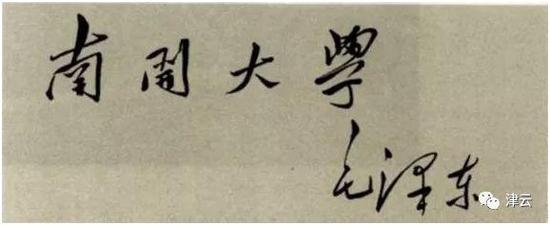 南開大學
毛泽东
津云